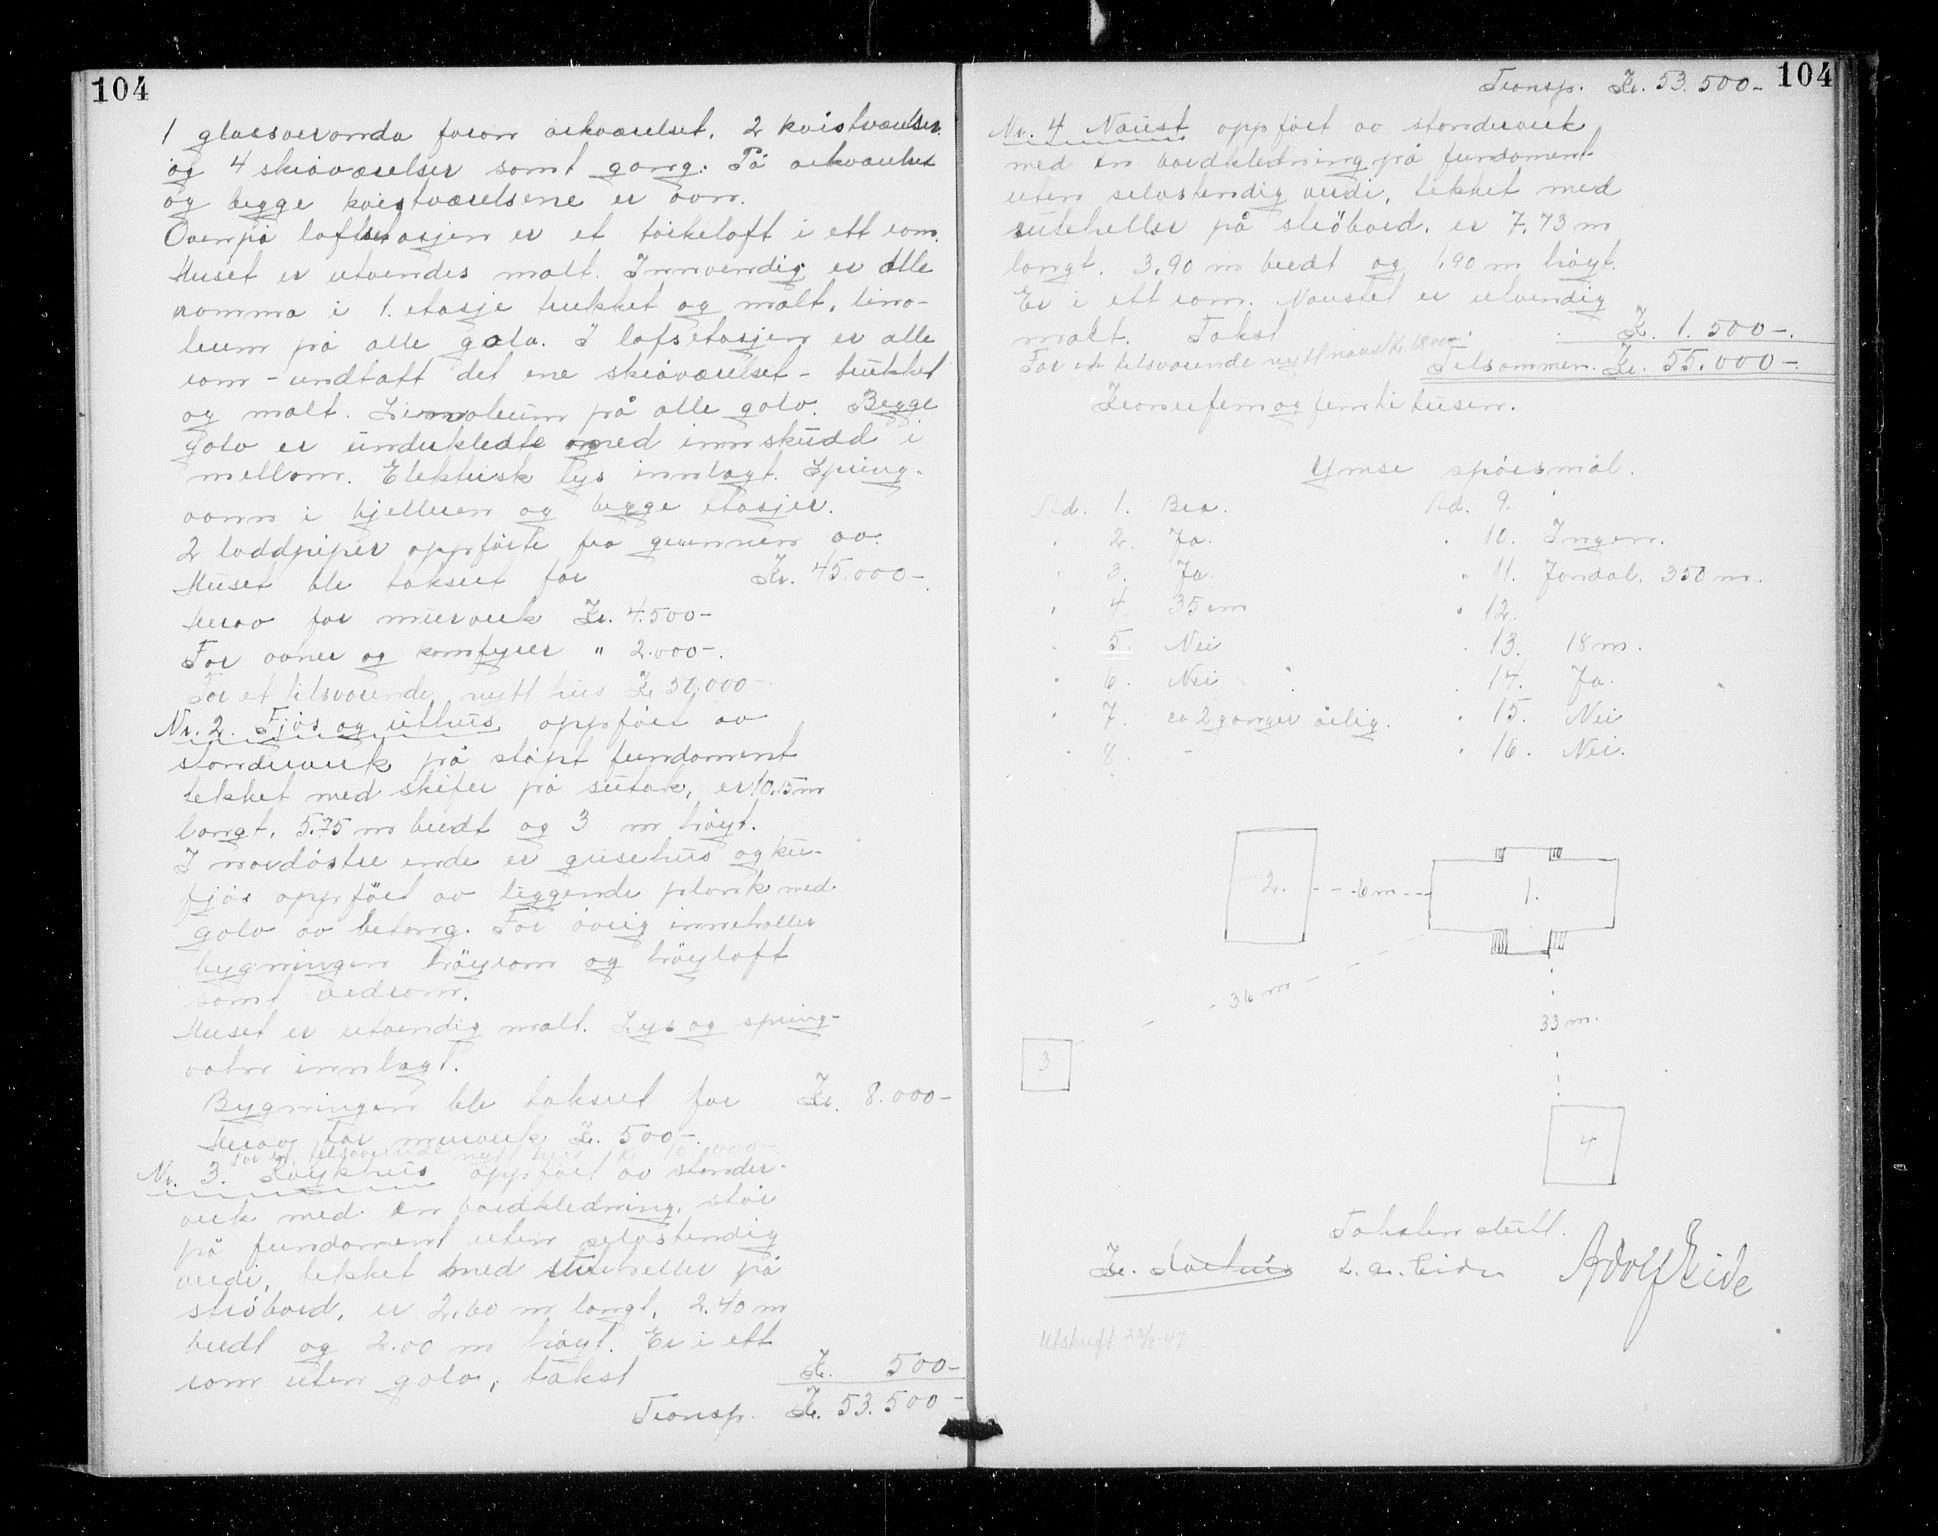 104
1 glassveranda foran arkværelset, 2 kvistværelser
og 4 skråværelser samt gang. På arkværelset
og begge kvistværelsene er ovn.
Ovenpå loftsetasjen er et tørkeloft i ett rom.
Huset er utvendes malt. Innvendig er alle
romma i 1. etasje trukket og malt, lino-
leum på alle golv. I lofsetasjen er alle
rom - undtatt det ene skråværelset - trukket
og malt. Linnoleum på alle golv. Begge
golv er underkledte med innskudd i
mellom. Elektrisk lys innlagt. Spring-
vann i kjelleren og begge etasjer.
2 loddpiper oppførte fra grunnen av.
Huset ble taksert for Kr. 45.000-
Herav for murverk Kr. 4.500-
For ovner og komfyrer " 2.000-.
For et tilsvarende nytt hus Kr 50.000-
Nr. 2. Fjøs og uthus, oppført av
standerverk på støpt fundament
tekket med skifer på sutak, er 10.15 m
langt, 5.75 m bredt og 3 m høyt.
I nordøstre ende er grisehus og ku-
fjøs oppført av liggende plank med
golv av betong. For øvrig inneholder
bygningen høyrom og høyloft
samt vedrom.
Huset er utvendig malt. Lys og spring-
vatn innlagt.
Bygningen ble taksert for Kr. 8.000-
Herav for murverk Kr. 500-.
For et tilsvarende nytt hus Kr 10.000-
Nr. 3. Røykhus oppført av stander-
verk med en bordkledning, står
på fundament uten selvstendig
verdi, tekket med suteheller på
strøbord, er 2,60 m langt, 2.40 m
bredt og 2.00 m høyt. Er i ett
rom uten golv, takst Kr. 500-
Transp. Kr. 53.500-
104
Transp. Kr. 53.500-
Nr. 4 Naust oppført av standerverk
med en bordkledning på fundament
uten selvstendig verdi, tekket med
suteheller på strøbord, er 7,73 m
langt, 3,90 m bredt og 1,90 m høyt.
Er i ett rom. Naustet er utvendig
malt. Takst Kr. 1.500-.
For et tilsvarende nytt naust Kr 1800-
Tilsammen Kr. 55.000-.
Kronerfemogfemtitusen.
Ymse spørsmål.
Ad. 1. Bra.
" 2. Ja.
" 3. Ja.
" 4. 35 cm
" 5. Nei
" 6. Nei
" 7. ca 2 ganger årlig.
" 8. -
Ad. 9.
" 10. Ingen.
" 11. Jondal, 350 m.
" 12.
" 13. 18 m.
" 14. Ja.
" 15. Nei
" 16. Nei.
2. 6 m 1.
36 m
33 m.
3
4
Taksten slutt.
L. A. Eide Adolf Eide
Utskrift